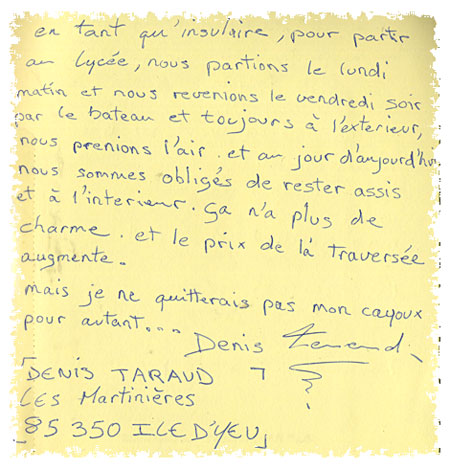 en tant qu'insulaire, pour partir
au lycée, nous partions le lundi
matin et nous revenions le vendredi soir
par le bateau et toujours à l'exterieur,
nous prenions l'air. et au jour d'aujourd'hui
nous sommes obligés de rester assis
et à l'interieur. ça n'a plus de
charme. et le prix de la traversée
augmente.
mais je ne quitterais pas mon cayoux
pour autant...
Denis Taraud
DENIS TARAUD
Les Martinières
85 350 ILE D'YEU